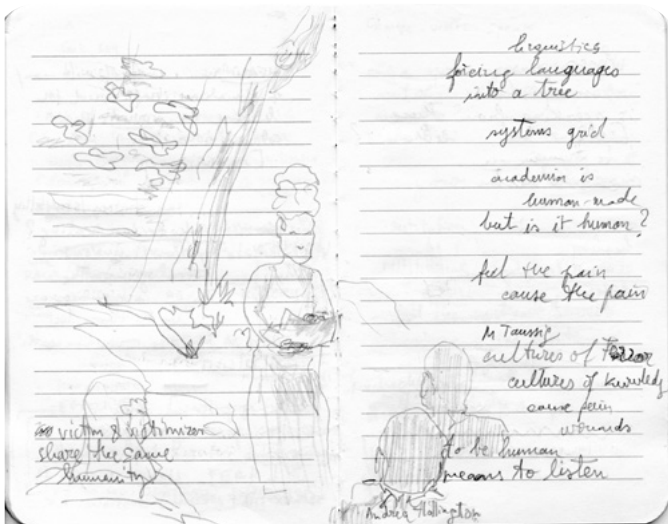 victim & victimizer
share the same
humanity
linguistics
forcing languages
into a tree
systems grid
academia is
human-made
but is it human?
feel the pain
cause the pain
M Taussig
cultures of Terror
cultures of knowledg
cause pain
wounds
to be human
means to listen
Andrea Hollington